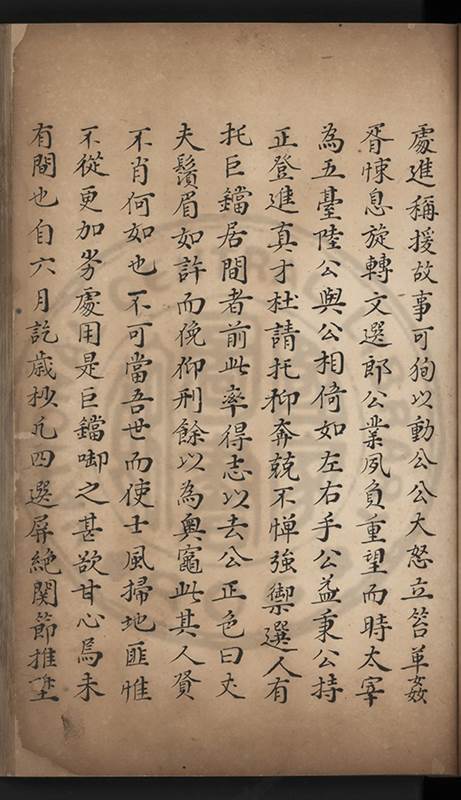 處進稱援故事可狥以動公公大怒立笞革姦
胥悚息旋轉文選郎公業夙負重望而時太宰
為五臺陸公與公相倚如左右手公益秉公持
正登進真才杜請托抑奔兢不憚強禦選人有
托巨鐺居間者前此率得志以去公正色曰丈
夫鬚眉如許而俛仰刑餘以為奧竈此其人資
不肖何如也不可當吾世而使士風掃地匪惟
不從更加劣處用是巨鐺啣之甚欲甘心焉未
有間也自六月訖歲抄凡四選屏絕関節推